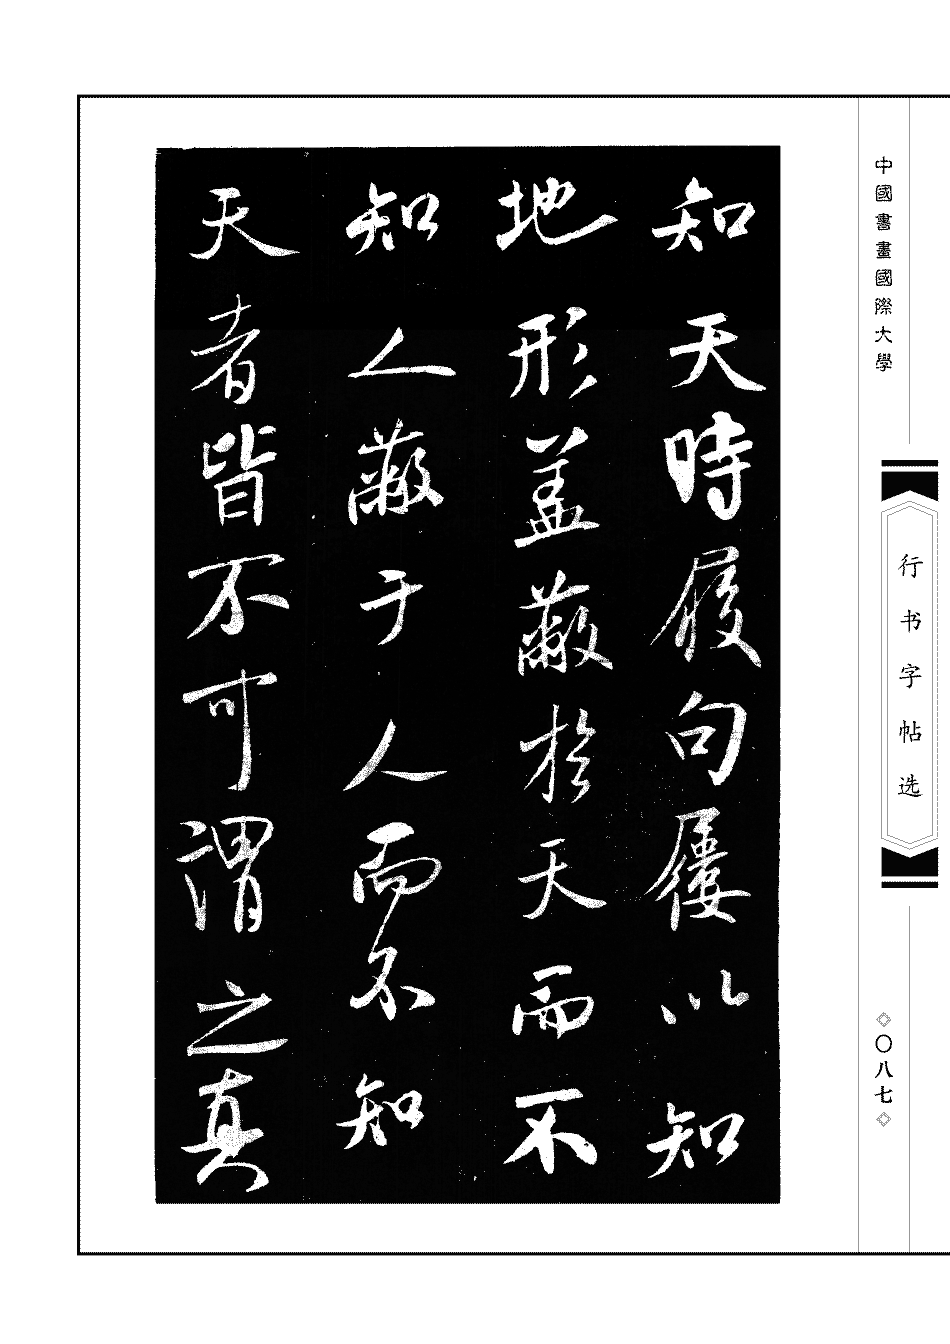 知天時履句屨以知
地形蓋蔽於天而不
知人蔽于人而不知
天者皆不可謂之真
中國書畫國際大學
行书字帖选
〇八七